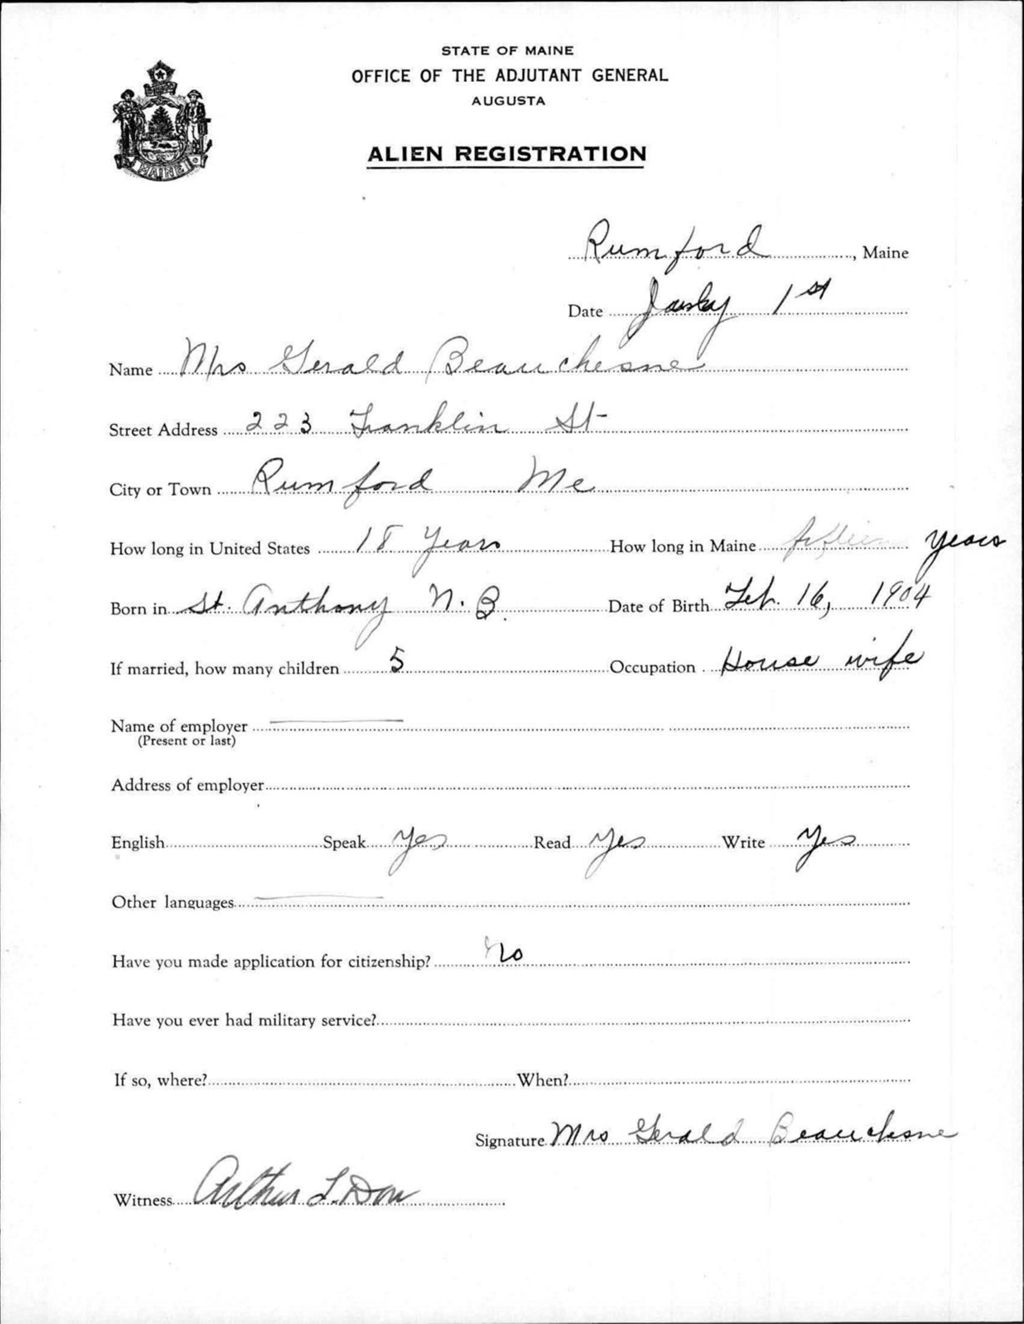 STATE OF MAINE
OFFICE OF THE ADJUTANT GENERAL
AUGUSTA
ALIEN REGISTRATION
MAINE
Rumford, Maine
Date 1st
Name Mrs Gerald Beauchesne
Street Address 223 Franklin St
City or Town Rumford Me
How long in United States 18 Years How long in Maine fifteen years
Born in St. Anthony N.B. Date of Birth Feb. 16, 1904
If married, how many children 5 Occupation House wife
Name of employer
(Present or last)
Address of employer
English Speak Yes Read Yes Write Yes
Other languages
Have you made application for citizenship? No
Have you ever had military service?
If so, where? When?
Signature Mrs Gerald Beauchesne
Witness Arthur L. Dow